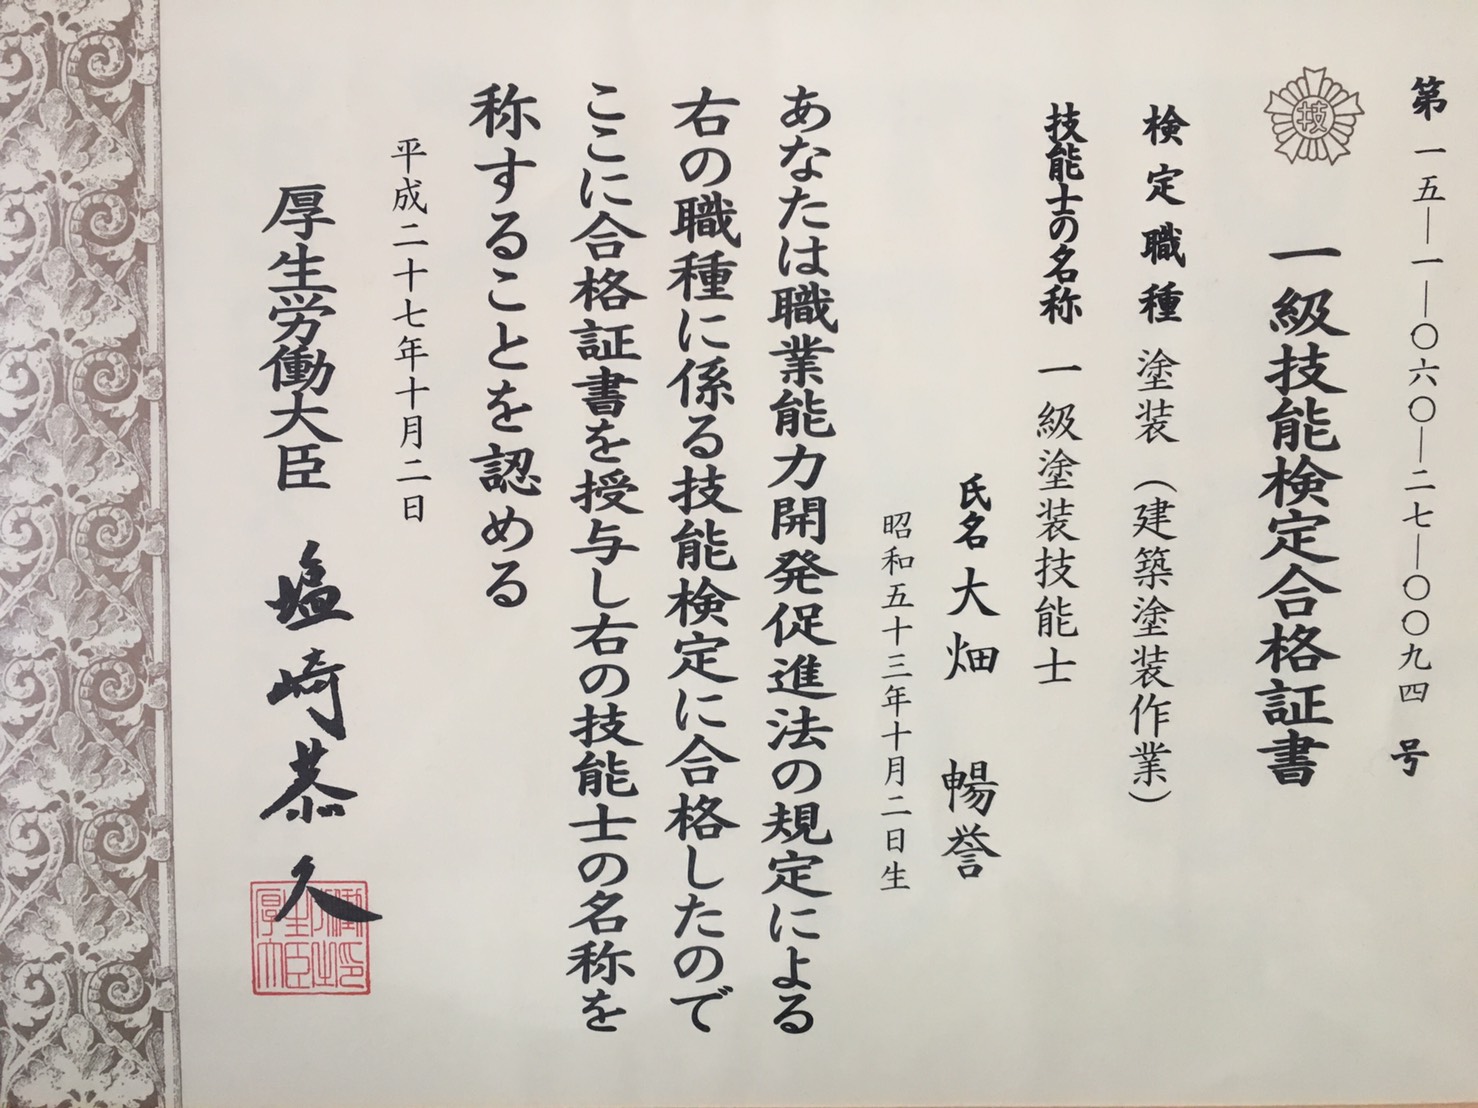 第一五―一―〇六〇―二七―〇〇九四号
技
一級技能検定合格証書
検定職種 塗装（建築塗装作業）
技能士の名称 一級塗装技能士
氏名 大畑 暢誉
昭和五十三年十月二日生
あなたは職業能力開発促進法の規定による
右の職種に係る技能検定に合格したので
ここに合格証書を授与し右の技能士の名称を
称することを認める
平成二十七年十月二日
厚生労働大臣 塩崎恭久